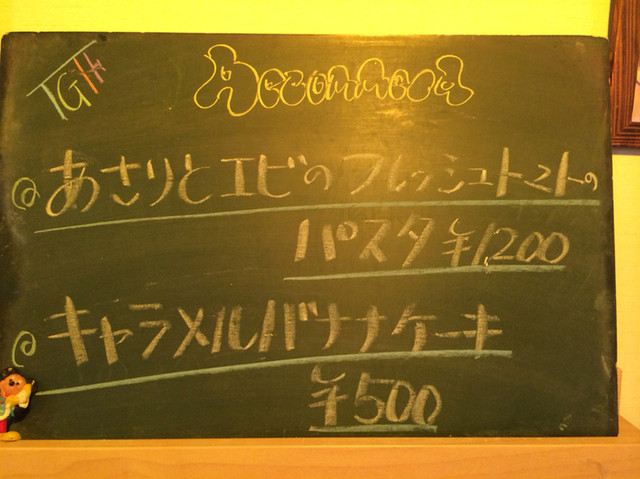 TGH
Recommend
あさりとエビのフレッシュトマトの
パスタ ¥1,200
キャラメルバナナケーキ
¥500